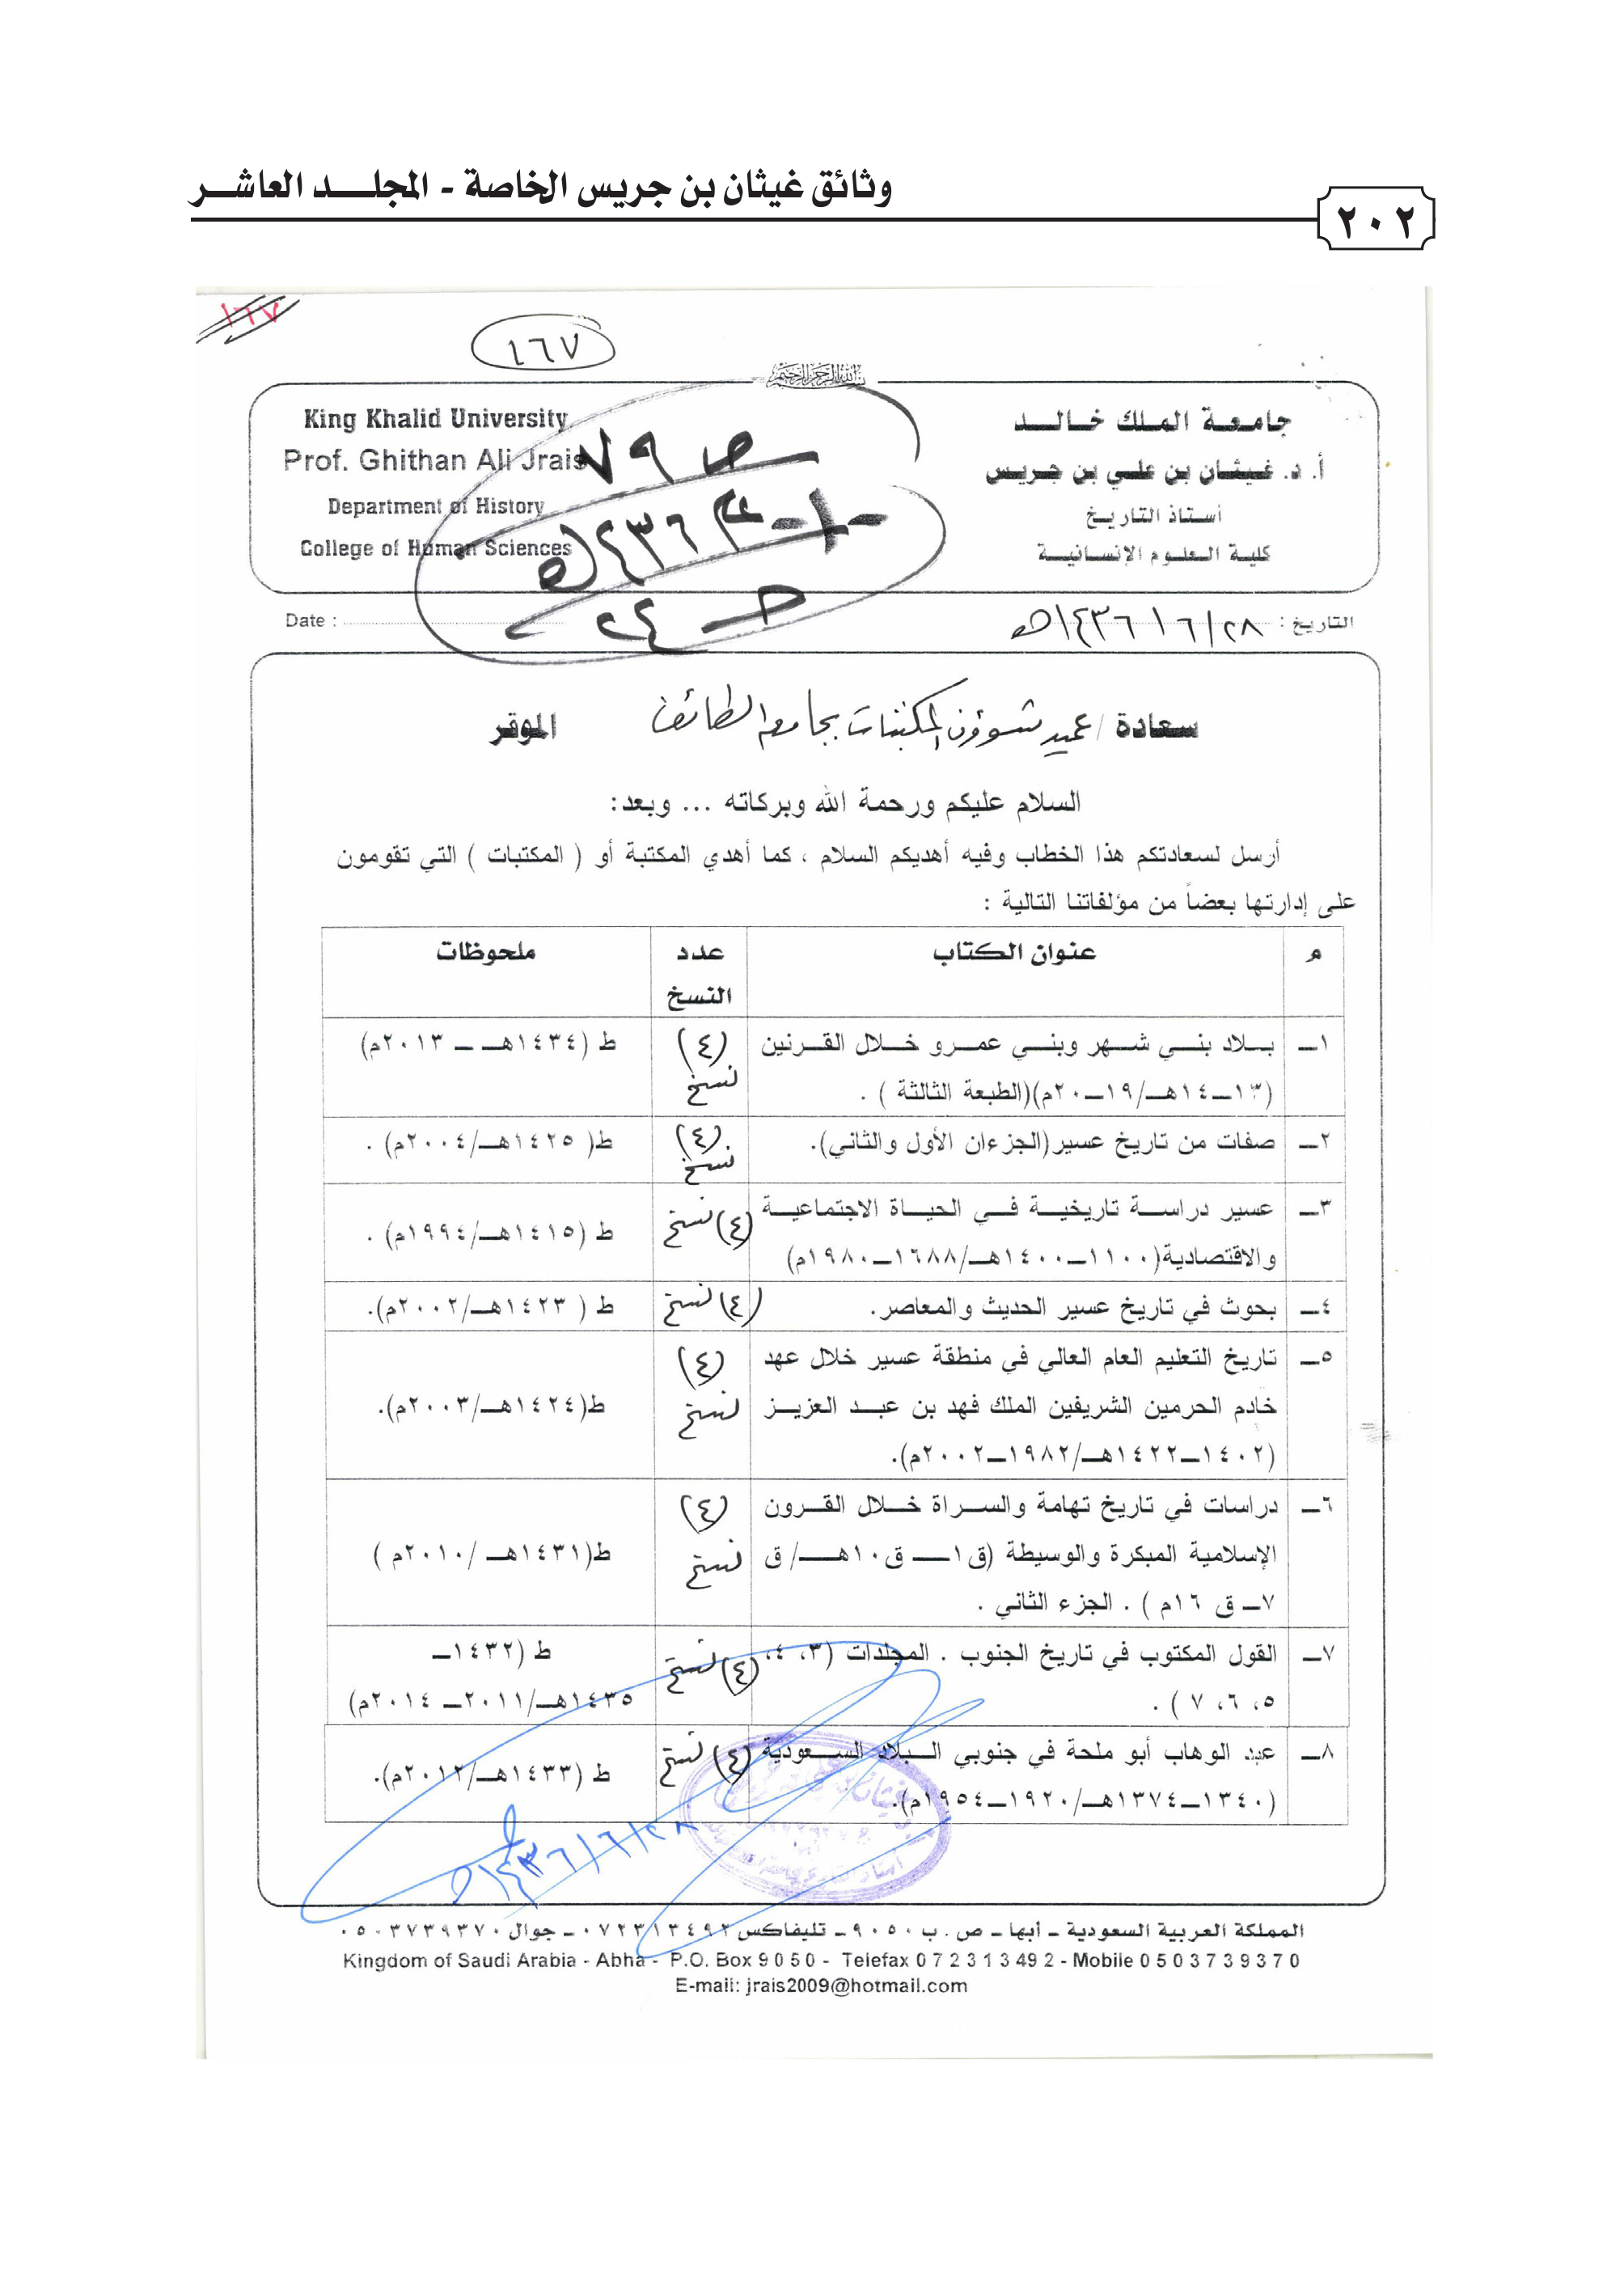 وثائق غيثان بن جريس الخاصة - المجلد العاشر
٢٠٢
١٦٧
١٦٧
بسم الله الرحمن الرحيم
جامعة الملك خالد
أ. د. غيثان بن علي بن جريس
أستاذ التاريخ
كلية العلوم الإنسانية
King Khalid University
Prof. Ghithan Ali Jrais
Department of History
College of Human Sciences
ص ٧٩
١٤٣٦هـ
التاريخ : ٢٨/٦/١٤٣٦هـ
Date :
سعادة / عميد شؤون المكتبات بجامعة الطائف الموقر
السلام عليكم ورحمة الله وبركاته ... وبعد:
أرسل لسعادتكم هذا الخطاب وفيه أهديكم السلام ، كما أهدي المكتبة أو ( المكتبات ) التي تقومون
على إدارتها بعضاً من مؤلفاتنا التالية :
م عنوان الكتاب عدد النسخ ملحوظات
١ـ بلاد بني شهر وبني عمرو خلال القرنين (٤) نسخ ط (١٤٣٤هـ ـ ٢٠١٣م)
(١٣ـ١٤هـ/١٩ـ٢٠م)(الطبعة الثالثة ) .
٢ـ صفات من تاريخ عسير(الجزءان الأول والثاني). (٤) نسخ ط( ١٤٢٥هـ/٢٠٠٤م) .
٣ـ عسير دراسة تاريخية في الحياة الاجتماعية (٤) نسخ ط (١٤١٥هـ/١٩٩٤م) .
والاقتصادية(١١٠٠ـ١٤٠٠هـ/١٦٨٨ـ١٩٨٠م)
٤ـ بحوث في تاريخ عسير الحديث والمعاصر. (٤) نسخ ط ( ١٤٢٣هـ/٢٠٠٢م).
٥ـ تاريخ التعليم العام العالي في منطقة عسير خلال عهد (٤)
خادم الحرمين الشريفين الملك فهد بن عبد العزيز نسخ ط(١٤٢٤هـ/٢٠٠٣م).
(١٤٠٢ـ١٤٢٢هـ/١٩٨٢ـ٢٠٠٢م).
٦ـ دراسات في تاريخ تهامة والسراة خلال القرون (٤)
الإسلامية المبكرة والوسيطة (ق١ـ ق١٠هـ/ ق نسخ ط(١٤٣١هـ /٢٠١٠م )
٧ـ ق ١٦م ) . الجزء الثاني .
٧ـ القول المكتوب في تاريخ الجنوب . المجلدات (٣، ٤، (٤) نسخ ط (١٤٣٢ـ
٥، ٦، ٧ ) . ١٤٣٥هـ/٢٠١١ـ ٢٠١٤م)
٨ـ عبد الوهاب أبو ملحة في جنوبي البلاد السعودية (٤) نسخ ط (١٤٣٣هـ/٢٠١٢م).
(١٣٤٠ـ١٣٧٤هـ/١٩٢٠ـ١٩٥٤م).
٢٨/٦/١٤٣٦هـ
المملكة العربية السعودية ـ أبها ـ ص . ب ٩٠٥٠ ـ تليفاكس ٠٧٢٣١٣٤٩٢ ـ جوال ٠٥٠٣٧٣٩٣٧٠
Kingdom of Saudi Arabia - Abha - P.O. Box 9 0 5 0 - Telefax 0 7 2 3 1 3 49 2 - Mobile 0 5 0 3 7 3 9 3 7 0
E-mail: jrais2009@hotmail.com